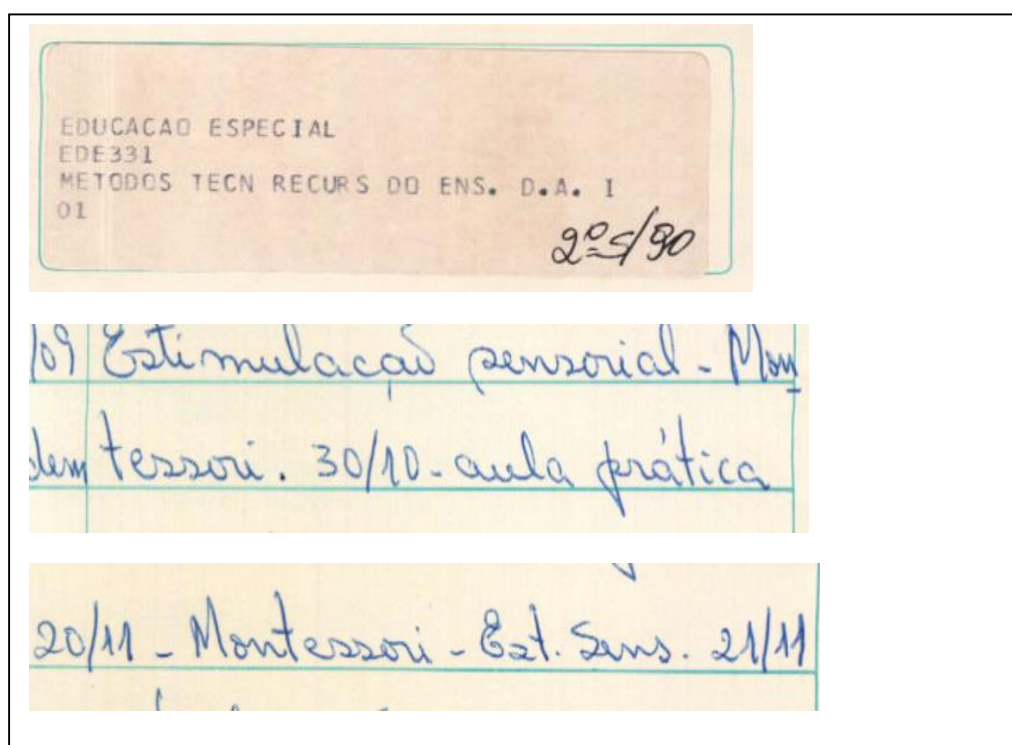 EDUCACAO ESPECIAL
EDE331
METODOS TECN RECURS DO ENS. D.A. I
01
2º S/90
/09 Estimulação sensorial - Mon
dem tessori. 30/10 - aula prática
20/11 - Montessori - Est. Sens. 21/11